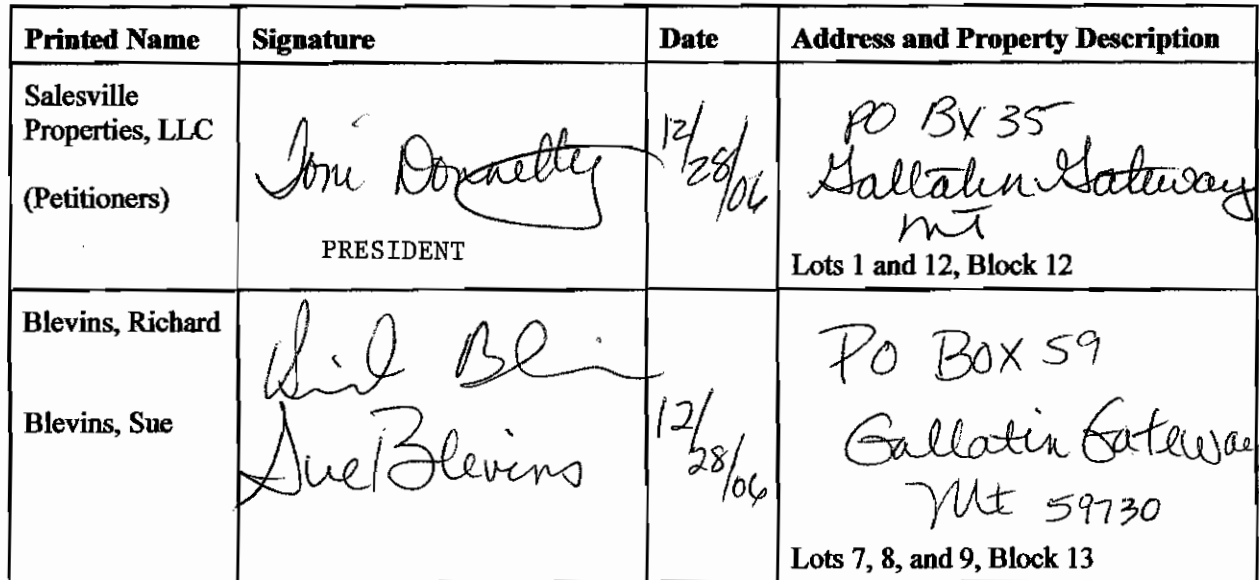 Printed Name Signature Date Address and Property Description
Salesville
Properties, LLC
(Petitioners)
Toni Donnelly
PRESIDENT
12/28/06
PO BX 35
Gallatin Gateway
MT
Lots 1 and 12, Block 12
Blevins, Richard
Blevins, Sue
Sue Blevins
12/28/06
PO BOX 59
Gallatin Gateway
Mt 59730
Lots 7, 8, and 9, Block 13